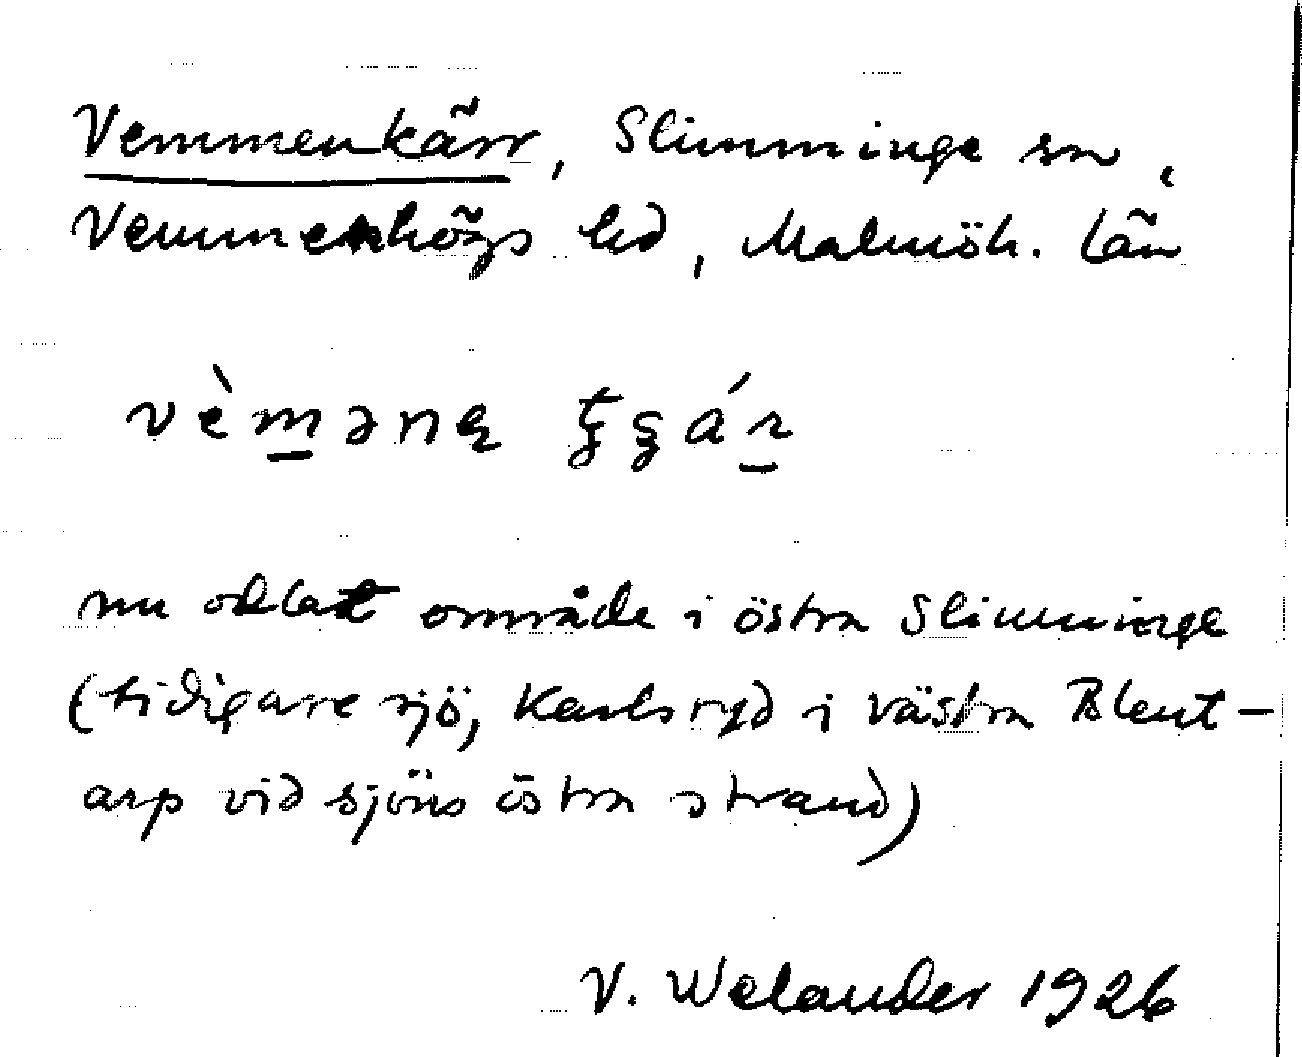 Vemmenkärr, Slimminge sn,
Vemmenhögs hd, Malmöh. län
vèmənę ꞓʂár
nu odlat område i östra Slimminge
(tidigare sjö, Karlsryd i västra Blent-
arp vid sjöns östra strand)
V. Welander 1926